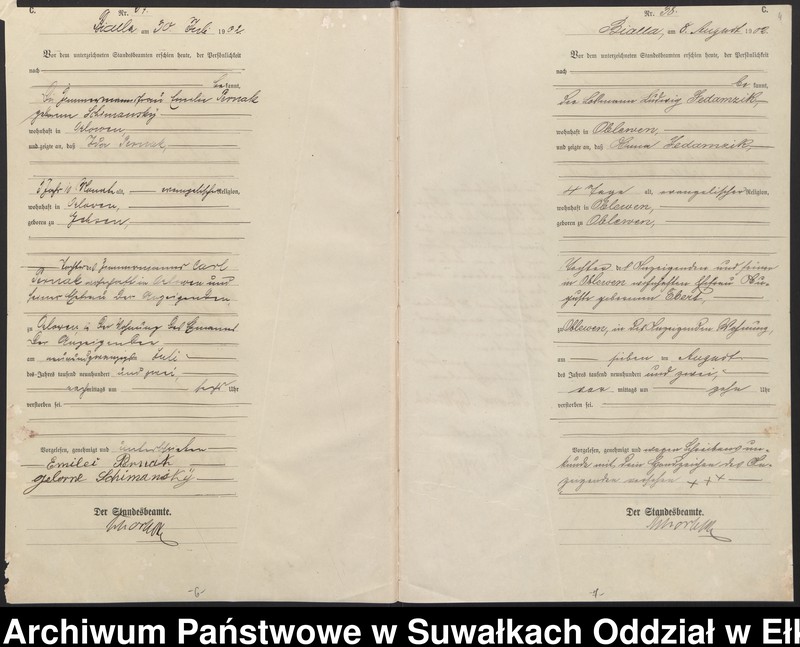 C.
Nr.
Bialla am 30 Juli 1902
Vor dem unterzeichneten Standesbeamten erschien heute, der Persönlichkeit
nach
be kannt,
die Zimmermannsfrau Emilie
geborne Schimansky
wohnhaft in Orlowen,
und zeigte an, daß
alt, evangelischer Religion,
wohnhaft in Orlowen,
geboren zu
Tochter des Zimmermanns Carl
wohnhaft in Orlowen und
seiner Ehefrau der Anzeigenden,
zu Orlowen in der Wohnung des
der Anzeigenden
am neunundzwanzigsten Juli
des Jahres tausend neunhundert und zwei,
nachmittags um sechs Uhr
verstorben sei.
Vorgelesen, genehmigt und unterschrieben
geborne Schimansky
Der Standesbeamte.
-6-
Nr. 38.
C.
Bialla, am 8. August 1902
Vor dem unterzeichneten Standesbeamten erschien heute, der Persönlichkeit
nach
be kannt,
der Losmann Ludwig Jedamzik,
wohnhaft in Oblewen,
und zeigte an, daß Anna Jedamzik,
4 Tage alt, evangelischer Religion,
wohnhaft in Oblewen,
geboren zu Oblewen,
Tochter des Anzeigenden und seiner
in Oblewen wohnhaften Ehefrau Au-
guste geborenen Ebert,
zu Oblewen, in des Anzeigenden Wohnung,
am sieben ten August
des Jahres tausend neunhundert und zwei,
vor mittags um zehn Uhr
verstorben sei.
Vorgelesen, genehmigt und wegen Schreibensun-
kunde mit dem Handzeichen des An-
zeigenden versehen +++
Der Standesbeamte.
Archiwum Państwowe w Suwałkach Oddział w Ełk